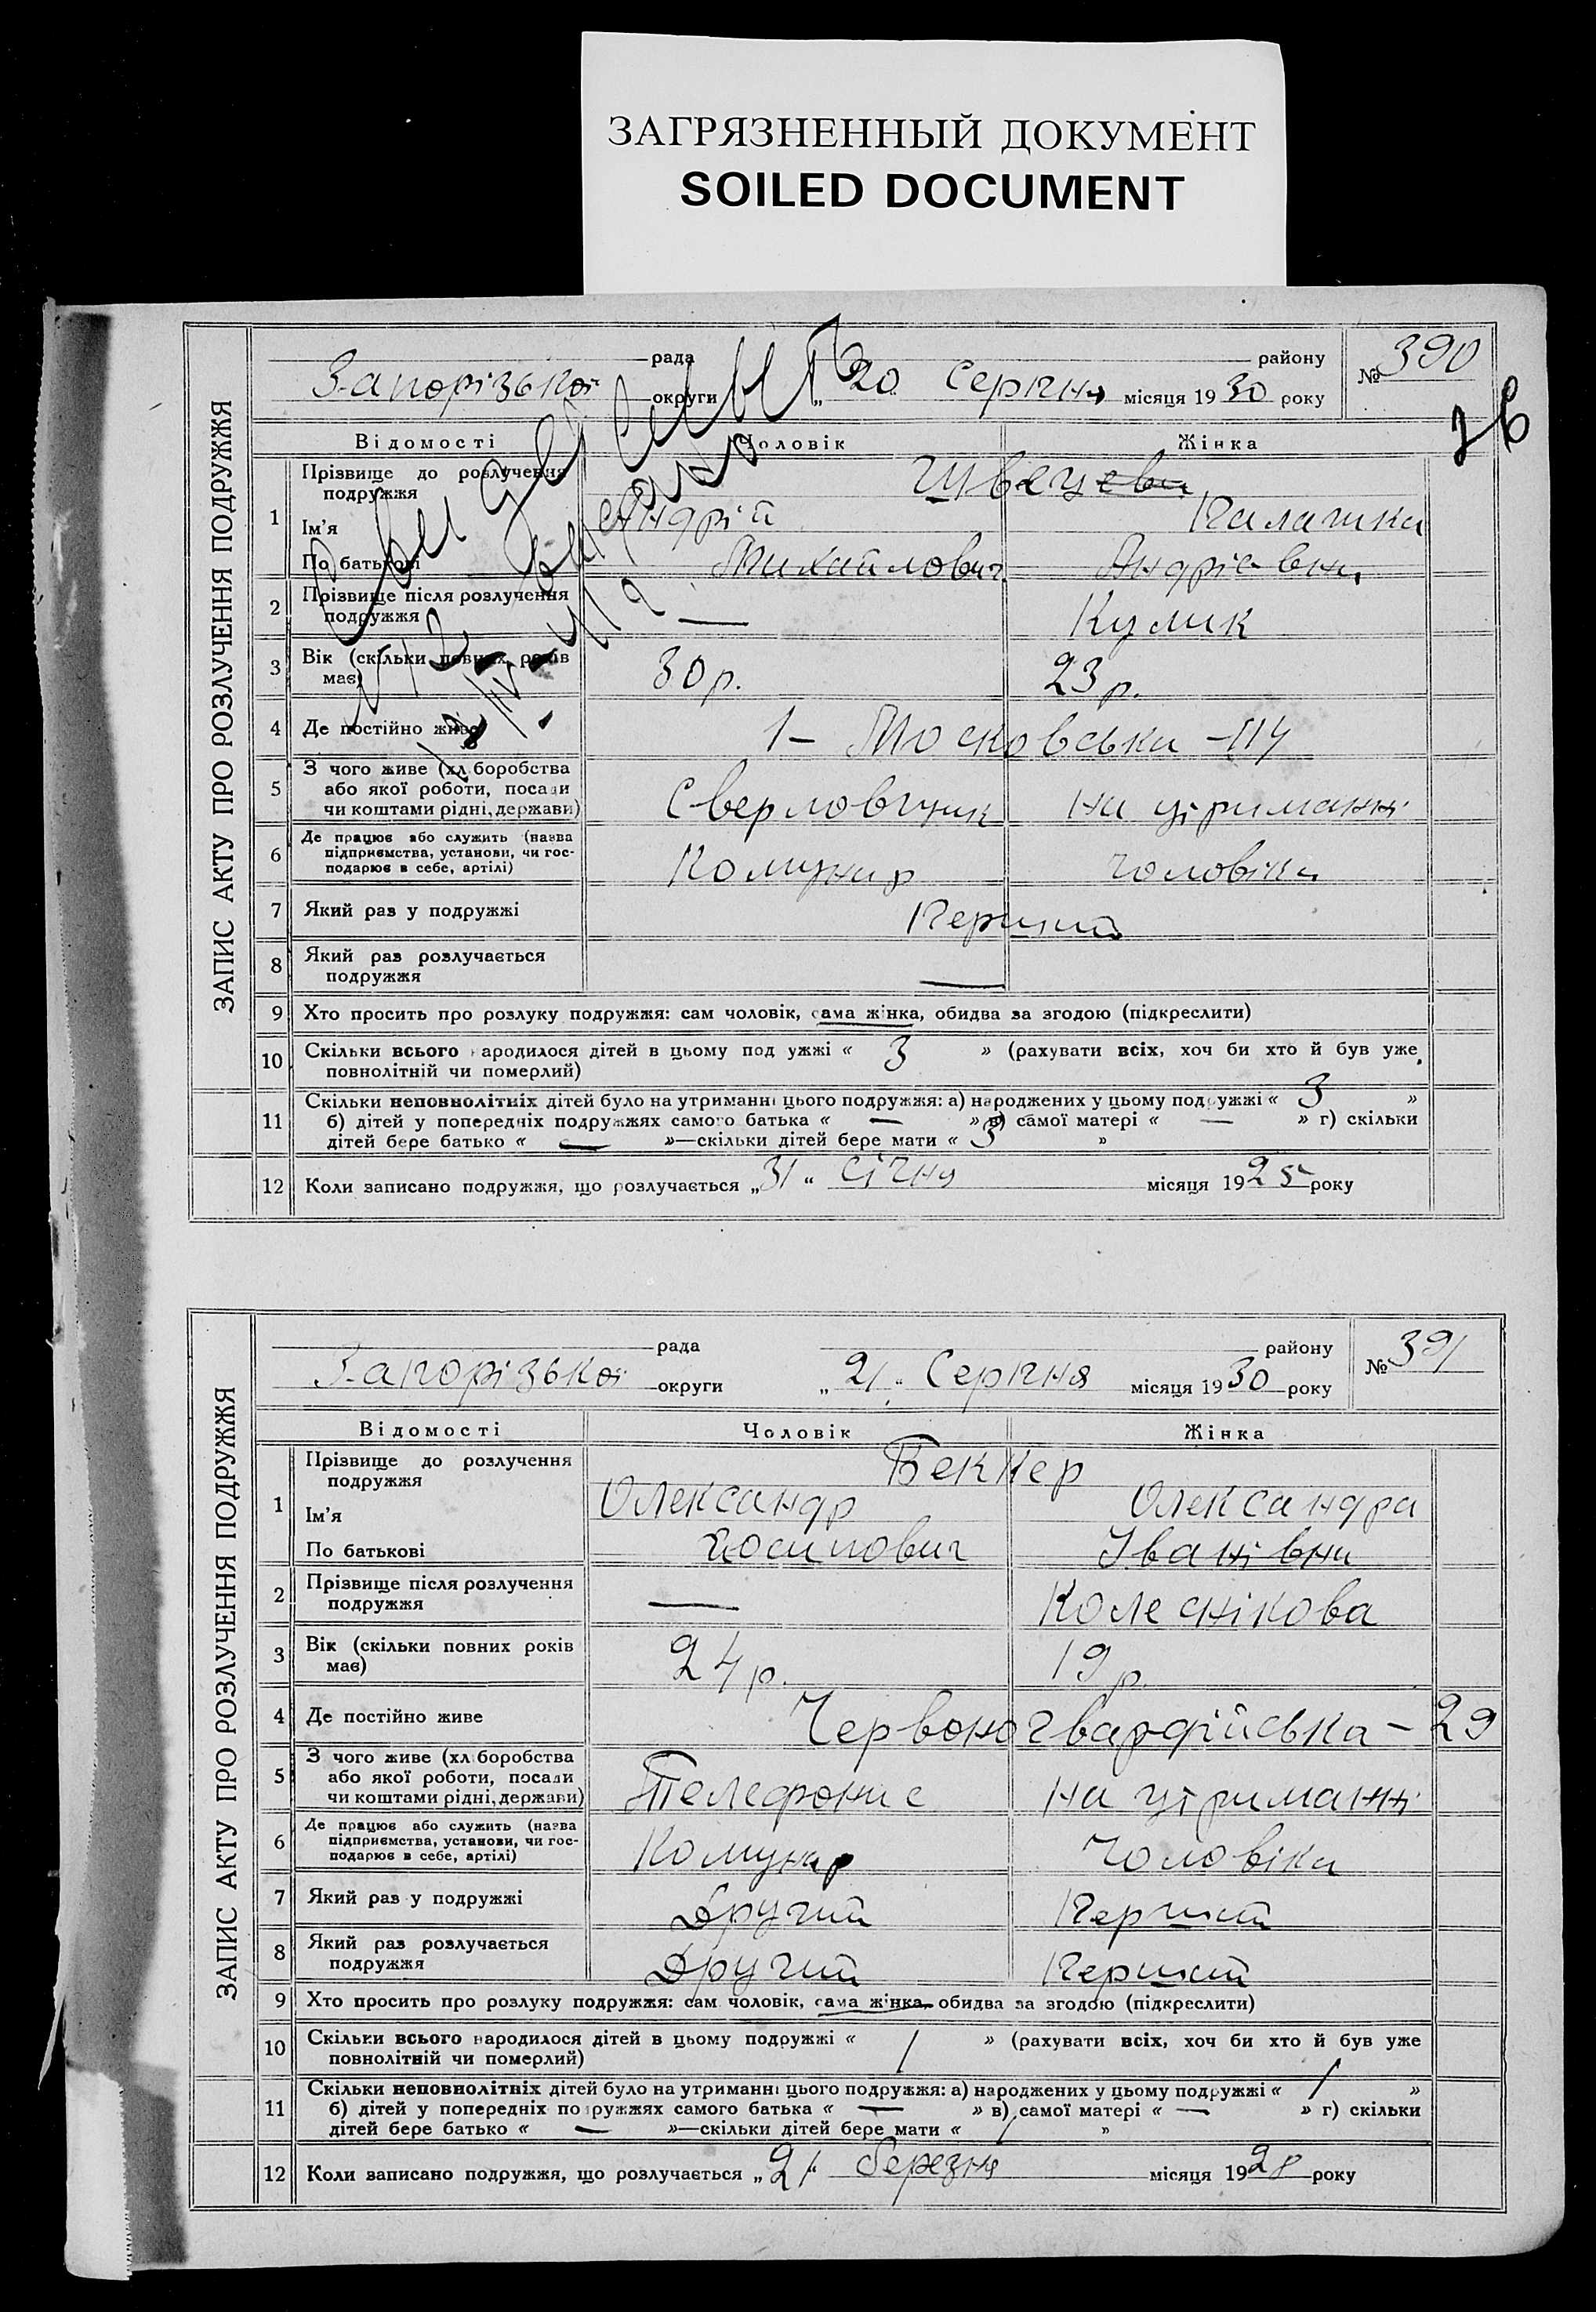 ЗАГРЯЗНЕННЫЙ ДОКУМЕНТ
SOILED DOCUMENT
ЗАПИС АКТУ ПРО РОЗЛУЧЕННЯ ПОДРУЖЖЯ
рада району № 390
Запорізької округи „20 Серпня місяця 1930 року
Відомості Чоловік Жінка
1 Прізвище до розлучення подружжя
Ім'я Андрій
По батькові Михайлович Андрієвна
2 Прізвище після розлучення подружжя — Кулик
3 Вік (скільки повних років має) 30 р. 23 р.
4 Де постійно живе 1– Московська –114
5 З чого живе (хліборобства або якої роботи, посади чи коштами рідні, держави) Сверловщик на утриманні
6 Де працює або служить (назва підприємства, установи, чи господарює в себе, артілі) Комунар чоловіка
7 Який раз у подружжі Перший
8 Який раз розлучається подружжя —
9 Хто просить про розлуку подружжя: сам чоловік, сама жінка, обидва за згодою (підкреслити)
10 Скільки всього народилося дітей в цьому подружжі « 3 » (рахувати всіх, хоч би хто й був уже
повнолітній чи померлий)
11 Скільки неповнолітніх дітей було на утриманні цього подружжя: а) народжених у цьому подружжі « 3 »
б) дітей у попередніх подружжях самого батька « — » в) самої матері « — » г) скільки
дітей бере батько « — »—скільки дітей бере мати « 3 »
12 Коли записано подружжя, що розлучається „31“ січня місяця 1925 року
ЗАПИС АКТУ ПРО РОЗЛУЧЕННЯ ПОДРУЖЖЯ
рада району № 391
Запорізької округи „21“ Серпня місяця 1930 року
Відомості Чоловік Жінка
1 Прізвище до розлучення подружжя Беккер
Ім'я Олександр Олександра
По батькові Йосипович Іванівна
2 Прізвище після розлучення подружжя — Колеснікова
3 Вік (скільки повних років має) 24 р. 19 р.
4 Де постійно живе Червоногвардійська – 29
5 З чого живе (хліборобства або якої роботи, посади чи коштами рідні, держави) Телефоніс на утриманні
6 Де працює або служить (назва підприємства, установи, чи господарює в себе, артілі) Комунар Чоловіка
7 Який раз у подружжі Другий Перший
8 Який раз розлучається подружжя Другий Перший
9 Хто просить про розлуку подружжя: сам чоловік, сама жінка, обидва за згодою (підкреслити)
10 Скільки всього народилося дітей в цьому подружжі « 1 » (рахувати всіх, хоч би хто й був уже
повнолітній чи померлий)
11 Скільки неповнолітніх дітей було на утриманні цього подружжя: а) народжених у цьому подружжі « 1 »
б) дітей у попередніх подружжях самого батька « — » в) самої матері « — » г) скільки
дітей бере батько « — »—скільки дітей бере мати « 1 »
12 Коли записано подружжя, що розлучається „21“ березня місяця 1928 року